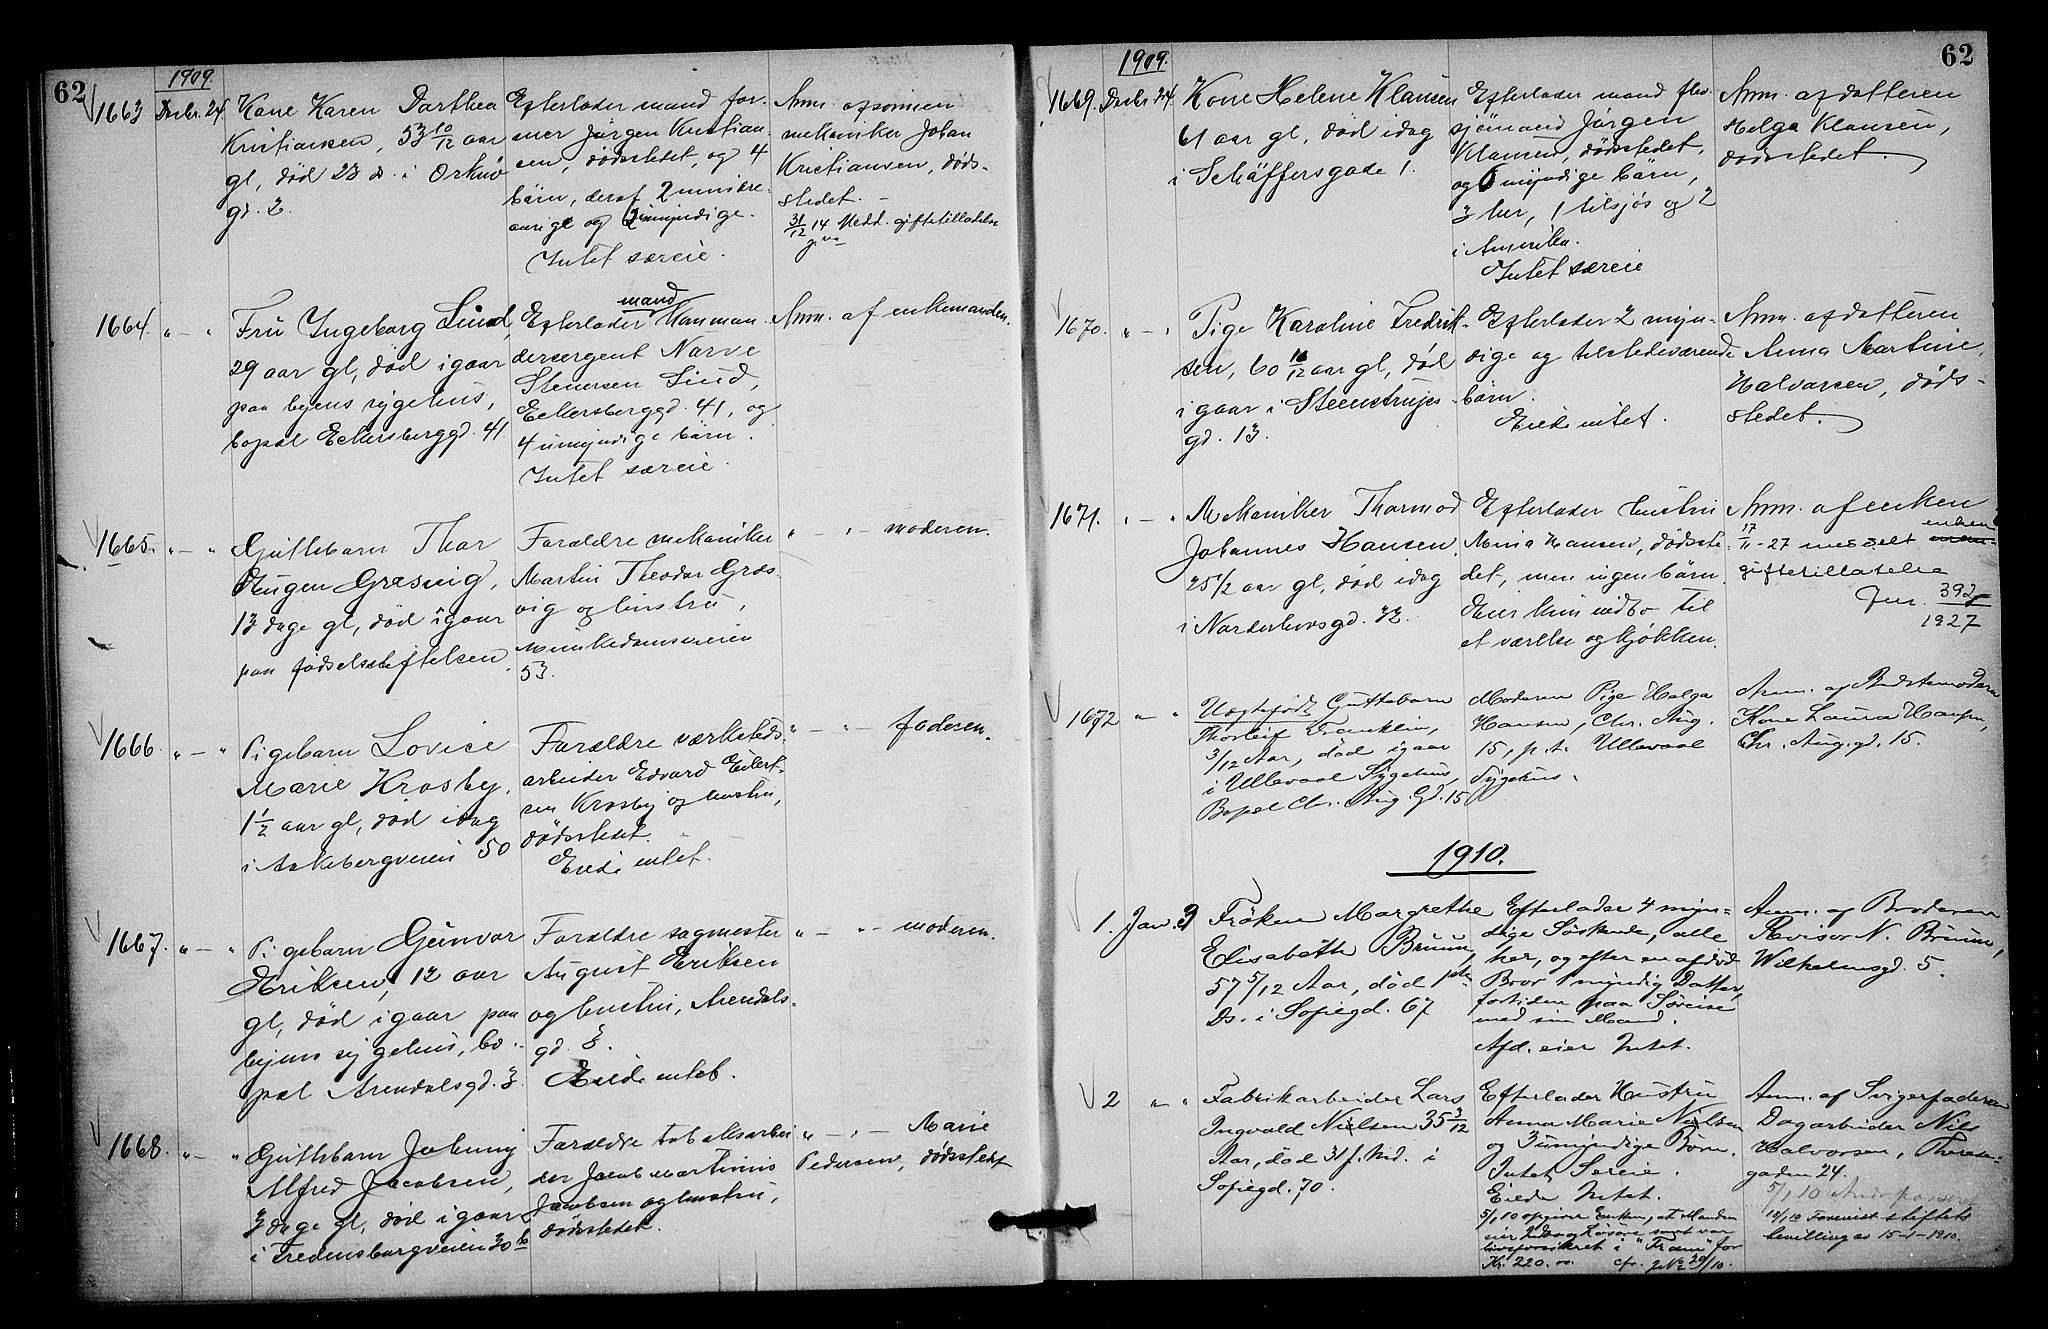 62
1909.
1663 Decbr. 24. Kone Karen Dorthea
Kristiansen, 53 10/12 aar
gl, död 23 ds. i Orknö
gd. 2.
Efterlader mand for-
mer Jörgen Kristian-
sen, dödsstedet, og 4
börn, deraf 2 mindre-
aarige og 2 myndige.
Intet særeie.
Anm. af sönnen
mekaniker Johan
Kristiansen, döds-
stedet.
31/12 14 Medd. giftetilladelse
1664. " — " Fru Ingeborg Lund,
29 aar gl, död igaar
paa byens sygehus,
bopæl Eckersberggd. 41.
mand
Efterlader
dersergent Narve
Stenersen Lund,
Eckersberggd. 41, og
4 umyndige börn.
Intet særeie.
Anm. af enkemanden.
1665. " — " Guttebarn Thor
Eugen Græsvig,
13 dage gl, död igaar
paa födselsstiftelsen.
Forældre mekaniker
Martin Theodor Græs-
vig og hustru,
Munkedamsveien
53.
" — " moderen.
1666 " — " Pigebarn Lovice
Marie Krosby,
1 1/2 aar gl, död idag
i Aakebergveien 50
Forældre værksteds-
arbeider Edvard Eilert-
sen Krosby og hustru,
dödsstedet.
Eiede intet.
" — " faderen.
1667. " — " Pigebarn Gunvor
Eriksen, 12 aar
gl, död igaar paa
byens sygehus, bo-
pæl Arendalsgd. 3.
Forældre sagmester
August Eriksen
og hustru, Arendals-
gd. 3.
Eiede intet.
" — " moderen.
1668. " — " Guttebarn Johnny
Alfred Jacobsen,
3 dage gl, död igaar
i Fredensborgveien 30 b
Forældre tobaksarbei-
der Jacob Martinius
Jacobsen og hustru,
dödsstedet.
" — " Marie
Pedersen, dödsstedet
62
1909.
1669. Decbr 24. Kone Helene Klausen
61 aar gl, död idag
i Schäffersgade 1.
Efterlader mand fhv.
sjömand Jörgen
Klausen, dödsstedet,
og 6 myndige börn,
3 her, 1 tilsjös og 2
i Amerika.
Intet særeie
Anm. af datteren
Helga Klausen,
dödsstedet.
1670. " — " Pige Karoline Fredrik-
sen, 60 10/12 aar gl, död
igaar i Steenstrups-
gd. 13.
Efterlader 2 myn-
dige og tilstedeværende
börn.
Eiede intet.
Anm. af datteren
Anna Martine
Halvorsen, döds-
stedet.
1671. " — " Mekaniker Thormod
Johannes Hansen,
25 1/2 aar gl, död idag
i Norderhovsgd. 32.
Efterlader hustru
Mina Hansen, dödsste-
det, men ingen börn.
Eier kun indbo til
et værelse og kjökken.
Anm. af enken
17/11 - 27 meddelt enken
giftetilladelse
Jur. 392/1927
1672 " — " Uægtefödt Guttebarn
Thorleif Franklin,
3/12 Aar, död igaar
i Ullevaal Sygehus,
Bopæl Chr. Aug. Gd. 15
Moderen Pige Helga
Hansen, Chr. Aug.
15, p.t. Ullevaal
Sygehus.
Anm. af Bedstemoderen
Kone Laura Hansen,
Chr. Aug. gd. 15.
1910.
1. Jan. 3 Fröken Margrethe
Elisabeth Bruun,
57 5/12 Aar, död 1ste
Ds. i Sofiegd. 67
Efterlader 4 myn-
dige Söskende, alle
her, og efter en afdöd
Bror 1 myndig Datter,
fortiden paa Söreise
med sin Mand.
Afd. eier Intet.
Anm. af Broderen
Revisor N. Bruun,
Wilhelmsgd. 5.
2 " " Fabrikarbeider Lars
Ingvald Nielsen 35 3/12
Aar, död 31 f. Md. i
Sofiegd. 70.
Efterlader Hustru
Anna Marie Nielsen
og 3 umyndige Börn.
Intet Særeie.
Eiede Intet.
5/1 10 opgiver Enken, at Manden
eier Indbo og Lösöre samt var
livsforsikret i "Fram" for
Kr. 220.00 cfr. J.No 29/10.
Anm. af Svigerfaderen
Dagarbeider Nils
Halvorsen, Therese-
gaden 24.
5/1 10
12/1 10 Forevist stiftets
bevilling av 15-1-1910.